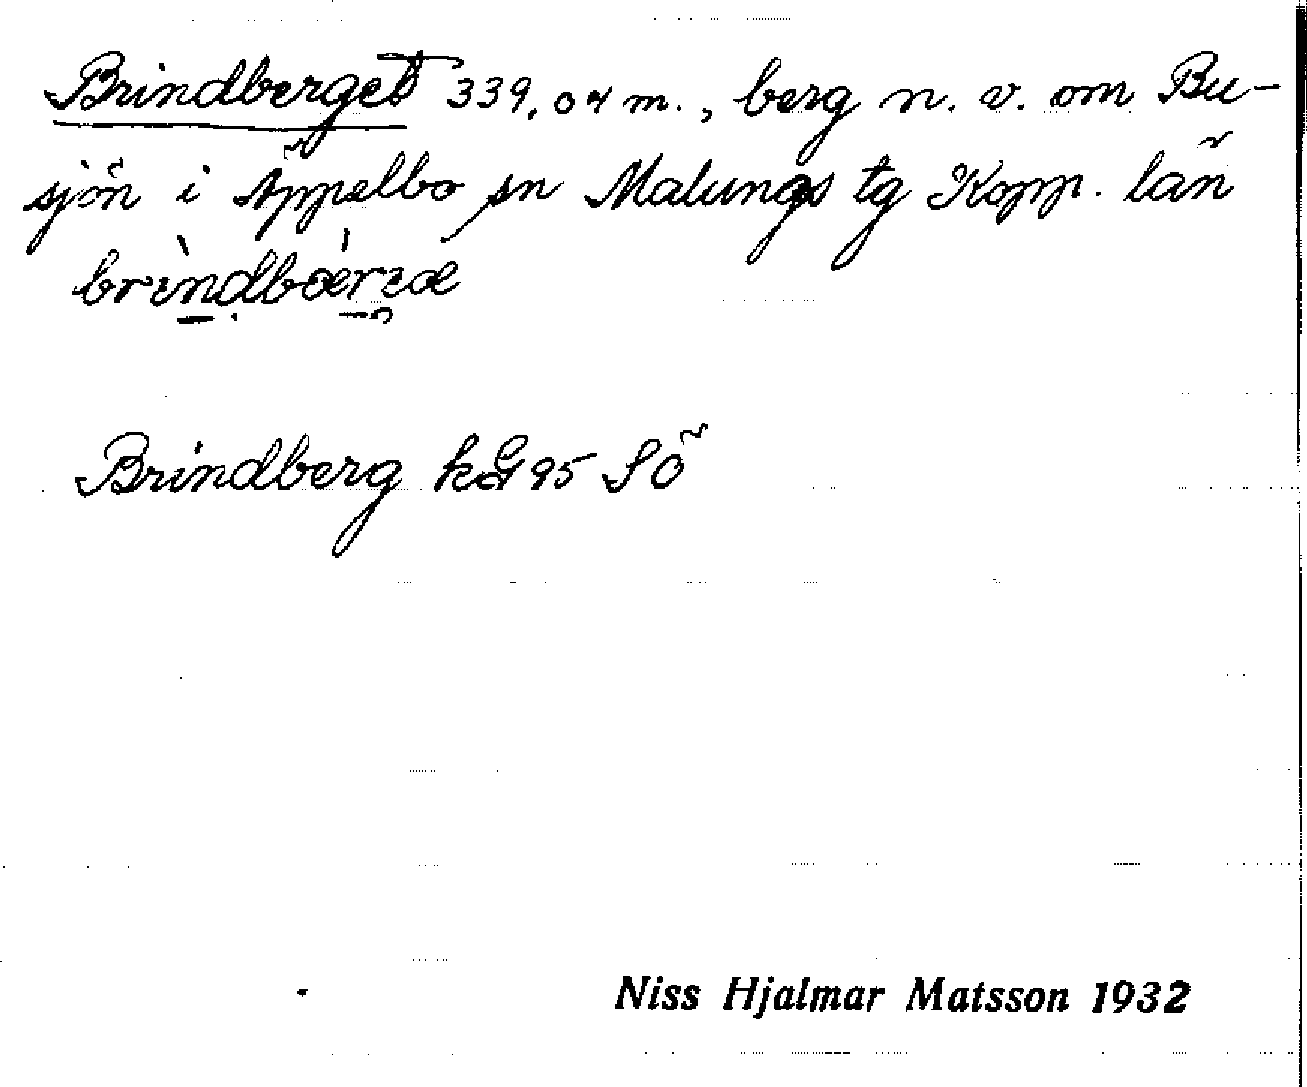 Brindberget 339,04 m., berg n. v. om Bu-
sjön i Äppelbo sn Malungs tg Kopp. län
brindbærɜæ
Brindberg kG95 SÖ
Niss Hjalmar Matsson 1932